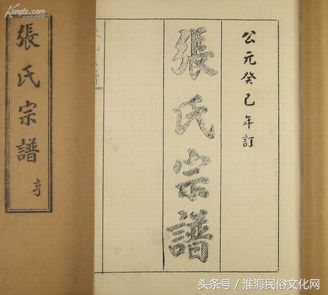 Kongfz.com
張氏宗譜
亨
公元癸巳年訂
張氏宗譜
头条号 / 淮海民俗文化网